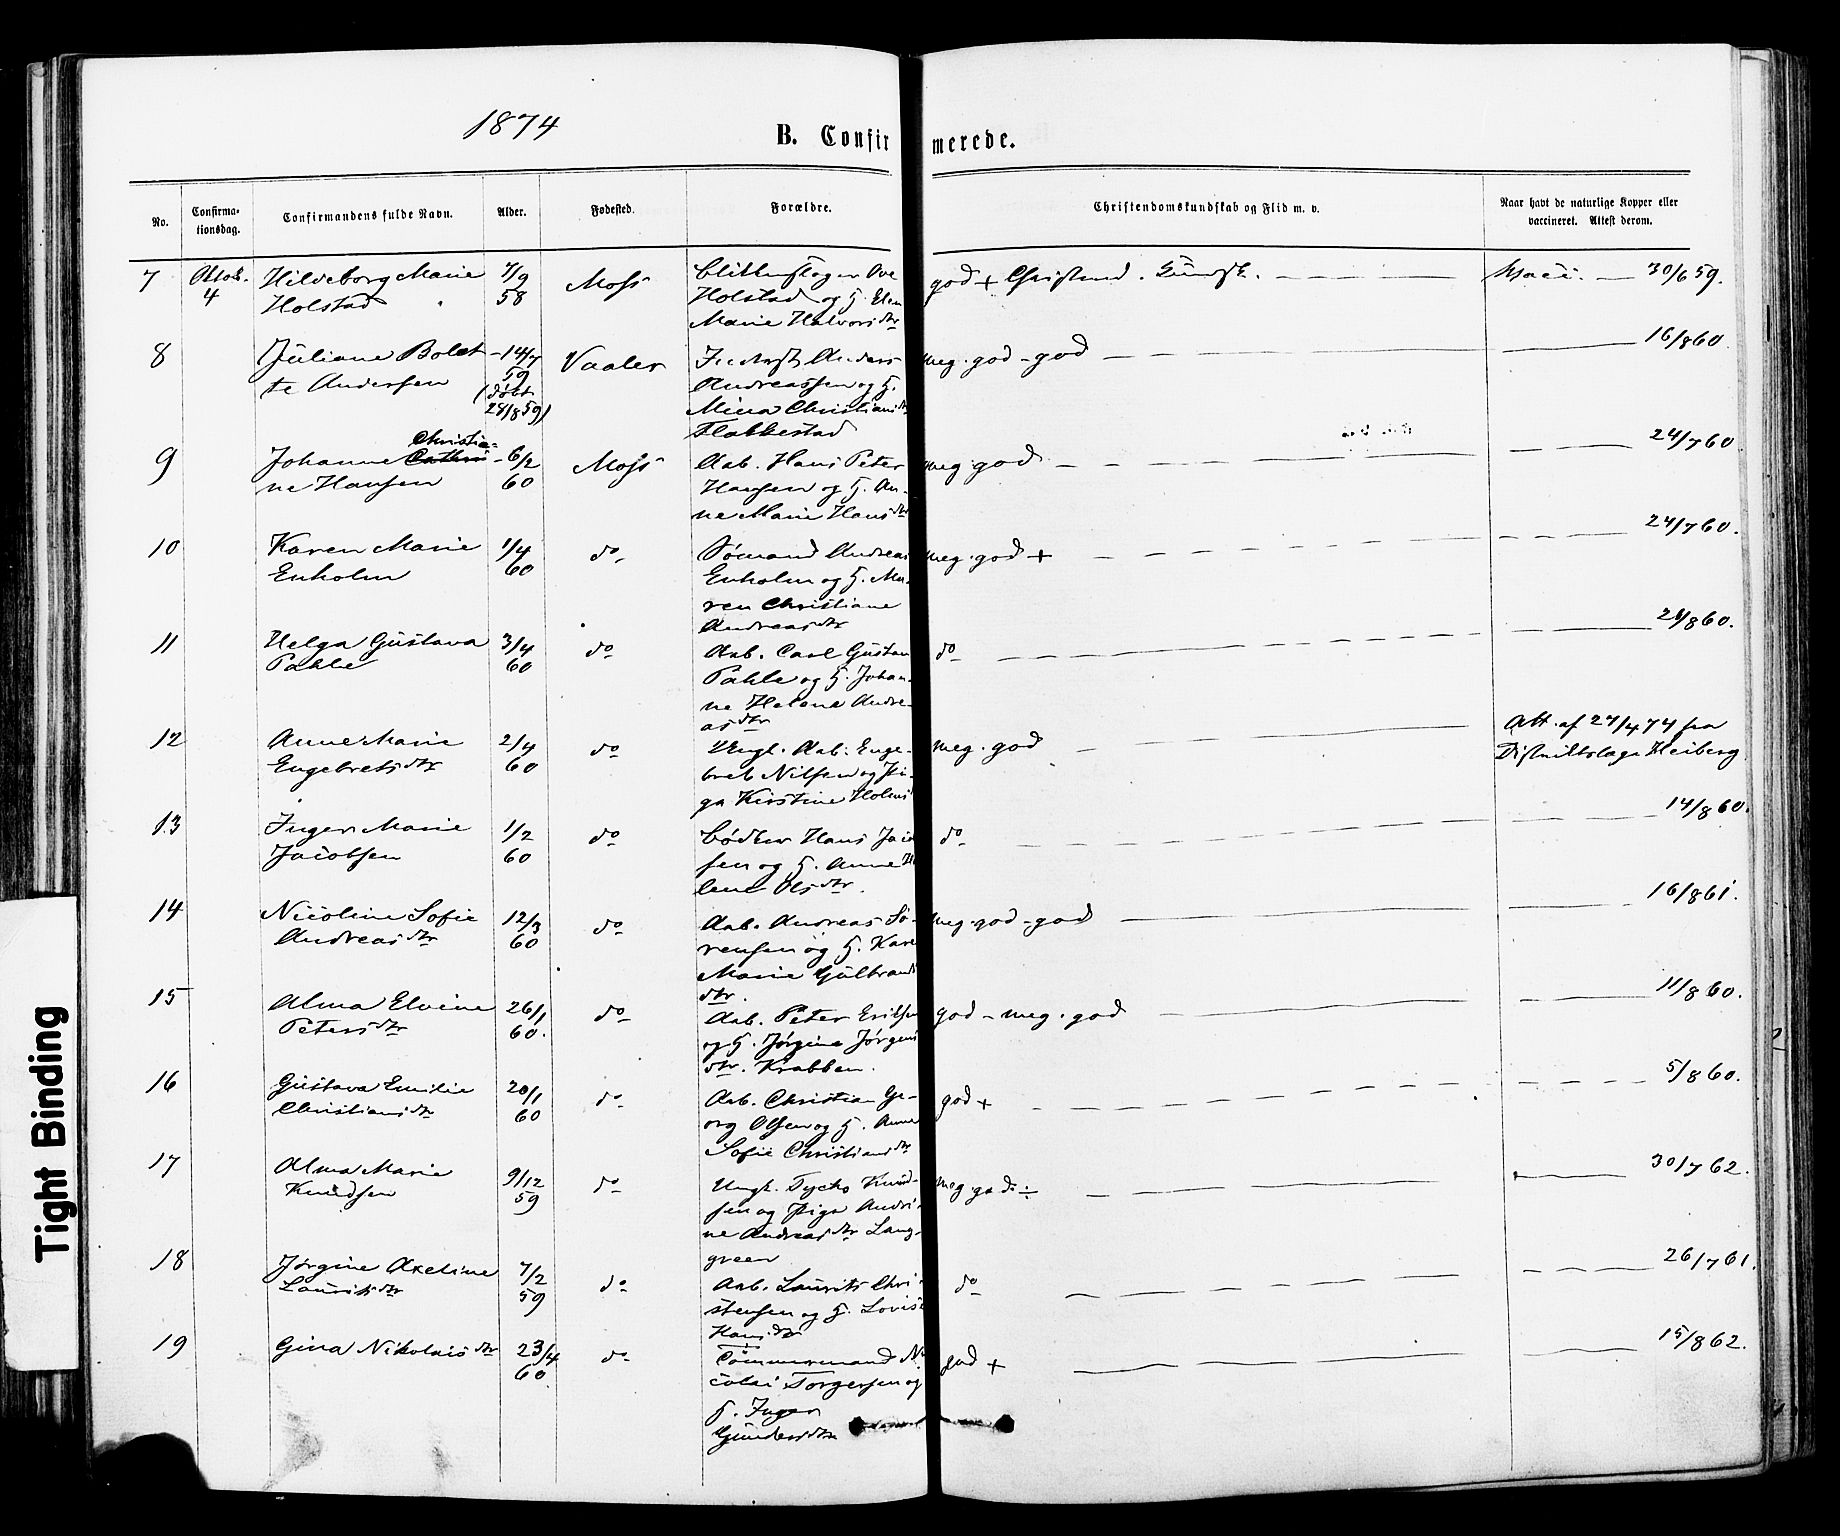 1874
B. Confirmerede.
No.
Confirma-
tionsdag.
Confirmandens fulde Navn.
Alder.
Fødested.
Forældre.
Christendomskundskab og Flid m. v.
Naar havt de naturlige Kopper eller
vaccineret. Attest derom.
7 Oktob. Hildeborg Marie 7/9 Moss Ove god + Christend. Kundsk. Vacci. 30/6 59.
4 Holstad 58 Holstad og H. Elen
Marie Halvorsdtr
8 Juliane Bolet- 14/7 Vaaler Anders meg. god - god 16/8 60.
te Andersen 59 Andreassen og H.
(døbt Mina Christiansdtr
28/8 59) Flakkestad
9 Johanne Christia- 6/2 Moss Arb. Hans Peter meg. god 24/7 60
ne Hansen 60 Hansen og H. An-
ne Marie Hansdtr
10 Karen Marie 1/4 do Sømand Andreas meg. god + 24/7 60.
Enholm 60 Enholm og H. Ma-
ren Christiane
Andreasdtr
11 Helga Gustava 3/4 do Arb. Carl Gustav do 24/8 60.
Pahle 60 Pahle og H. Johan-
ne Helena Andre-
asdtr
12 Anne Marie 2/4 do Ungk. Arb. Enge- meg. god Att. af 27/4 74 fra
Engebretsdtr 60 bret Nilsen og Pi- Distriktslæge Heiberg
ge Kirstine Holms
13 Inger Marie 1/2 do Bødker Hans Jacob do 14/8 60.
Jacobsen 60 sen og H. Anne He
lene Olsdtr.
14 Nicoline Sofie 12/3 do Arb. Andreas Sø- meg. god - god 16/8 61.
Andreasdtr 60 rensen og H. Kare
Marie Gulbrands
dtr.
15 Alma Elvine 26/1 do Arb. Peter Eriksen god - meg. god 11/8 60.
Petersdtr 60. og H. Jørgine Jørgens
dtr. Krabben.
16 Gustava Emilie 20/1 do Arb. Christian Ge- god + 5/8 60.
Christiansdtr 60 org Olsen og H. Anne
Sofie Christiansdtr
17 Alma Marie 9/12 do Ungk. Tycho Knud- meg. god ÷ 30/7 62.
Knudsen 59 sen og Pige Andri-
ne Andreasdtr Lang-
green
18 Jørgine Axeline 7/2 do Arb. Laurits Chri- do 26/7 61.
Lauritsdtr 59 stensen og H. Lovise
Hansdtr
19 Gina Nikolaisdtr 23/4 do Tømmermand Ni god + 15/8 62.
60. colai Torgersen og
H. Inger
Gundersdtr
Tight Binding